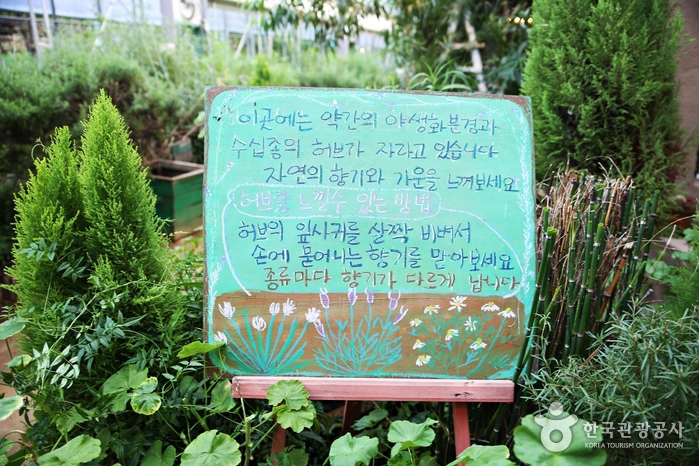 이곳에는 약간의 야생화분경과
수십종의 허브가 자라고 있습니다
자연의 향기와 기운을 느껴보세요
허브향 느낄수 있는 방법
허브의 잎사귀를 살짝 비벼서
손에 묻어나는 향기를 맡아보세요
종류마다 향기가 다르게 납니다
한국관광공사
KOREA TOURISM ORGANIZATION